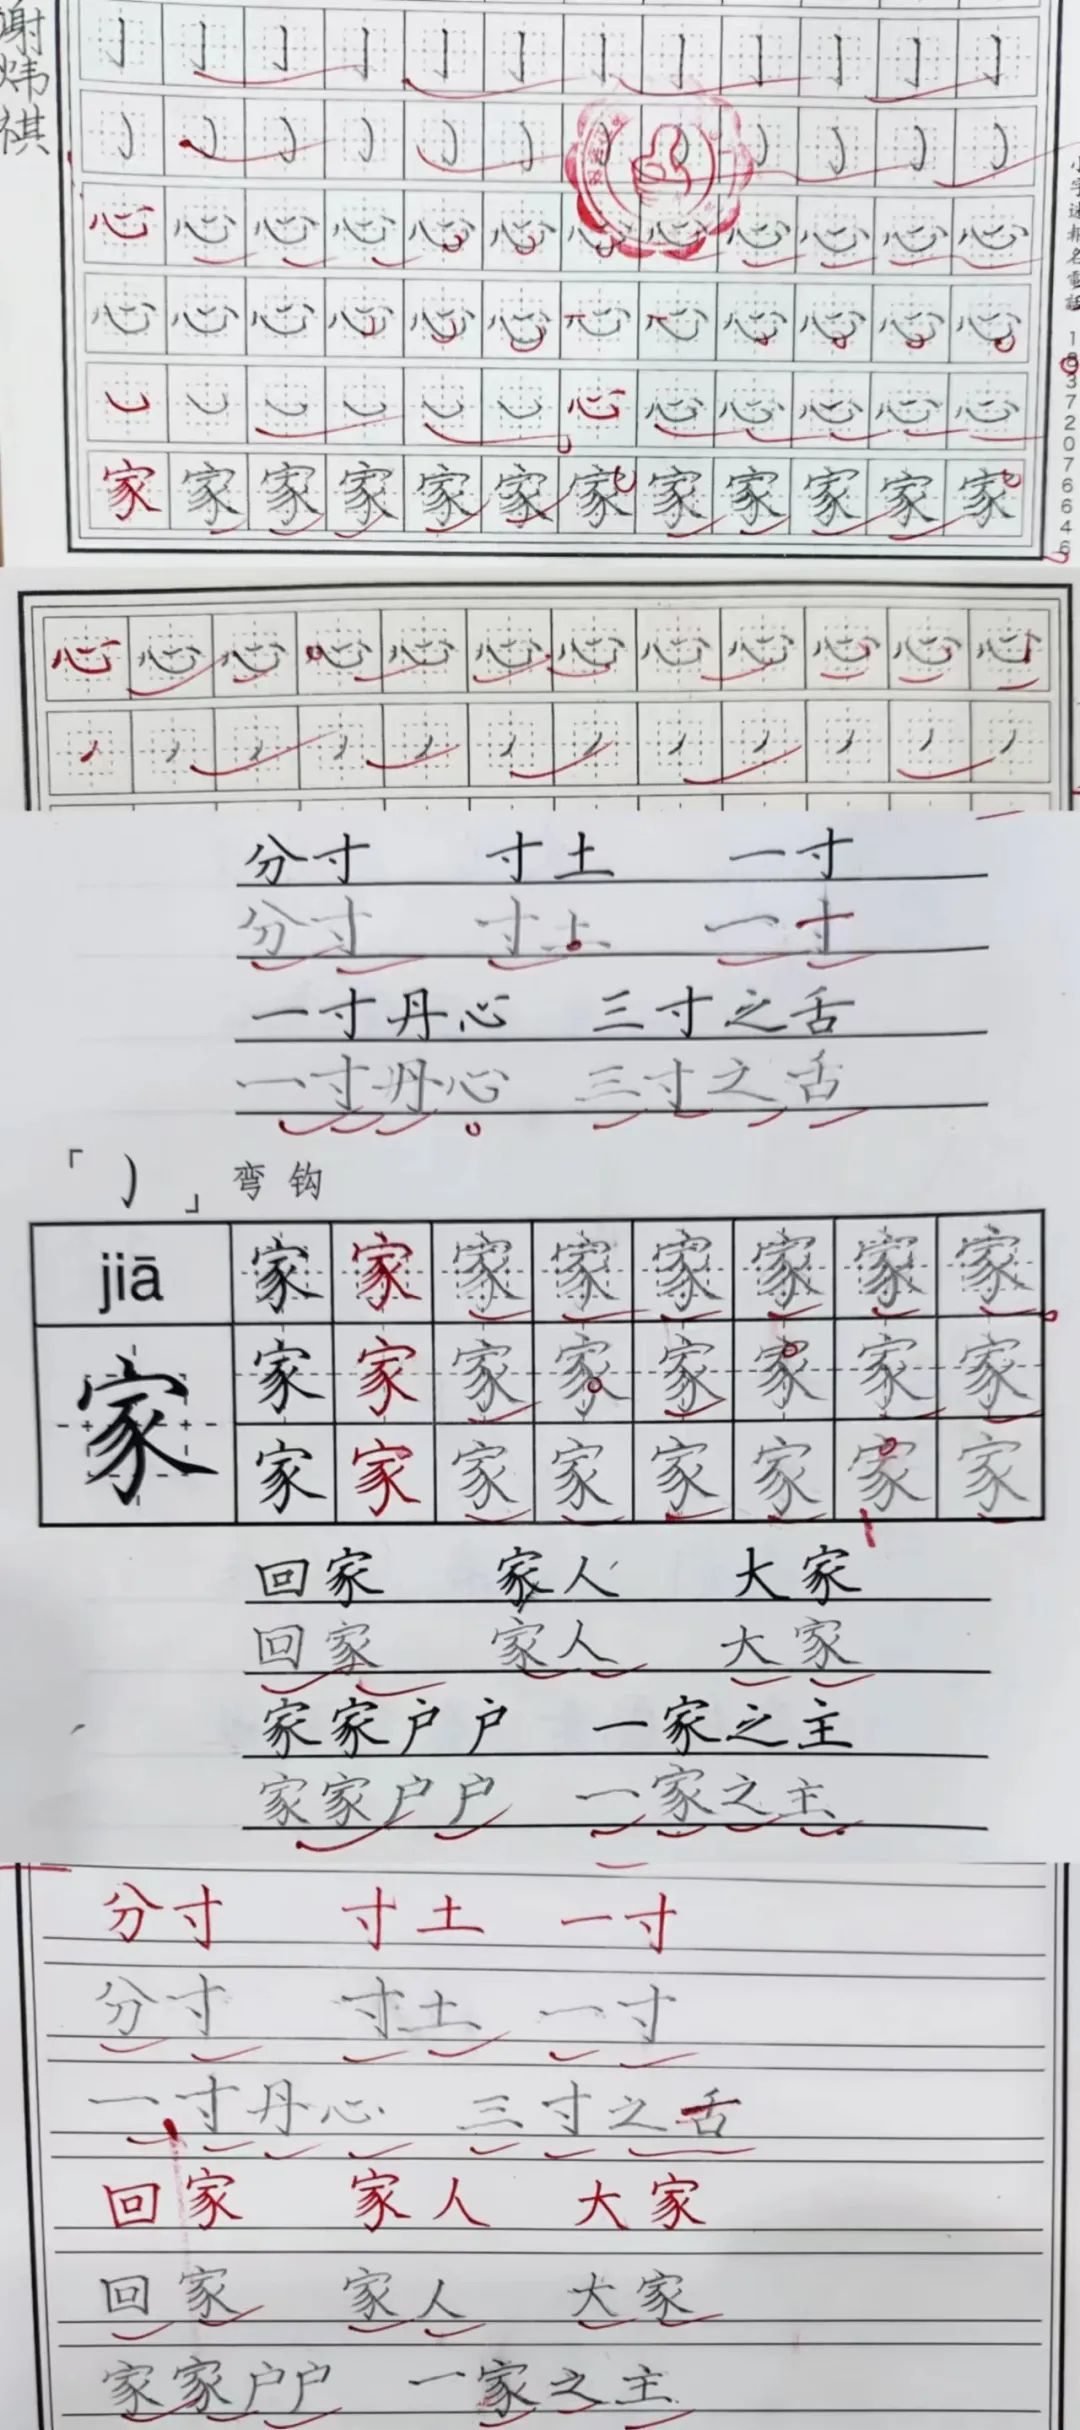 谢炜祺
亅亅亅亅亅亅亅亅亅亅亅亅
心心心心心心心心心心心心
心心心心心心心心心心心心
心心心心心心
家家家家家家家家家家家家
18372076646
心心心心心心心心心心心心
分寸 寸土 一寸
分寸 寸土 一寸
一寸丹心 三寸之舌
一寸丹心 三寸之舌
「㇁」弯钩
jiā 家家家家家家家家
家 家家家家家家家家
家家家家家家家家
回家 家人 大家
回家 家人 大家
家家户户 一家之主
家家户户 一家之主
分寸 寸土 一寸
分寸 寸土 一寸
一寸丹心 三寸之舌
回家 家人 大家
回家 家人 大家
家家户户 一家之主